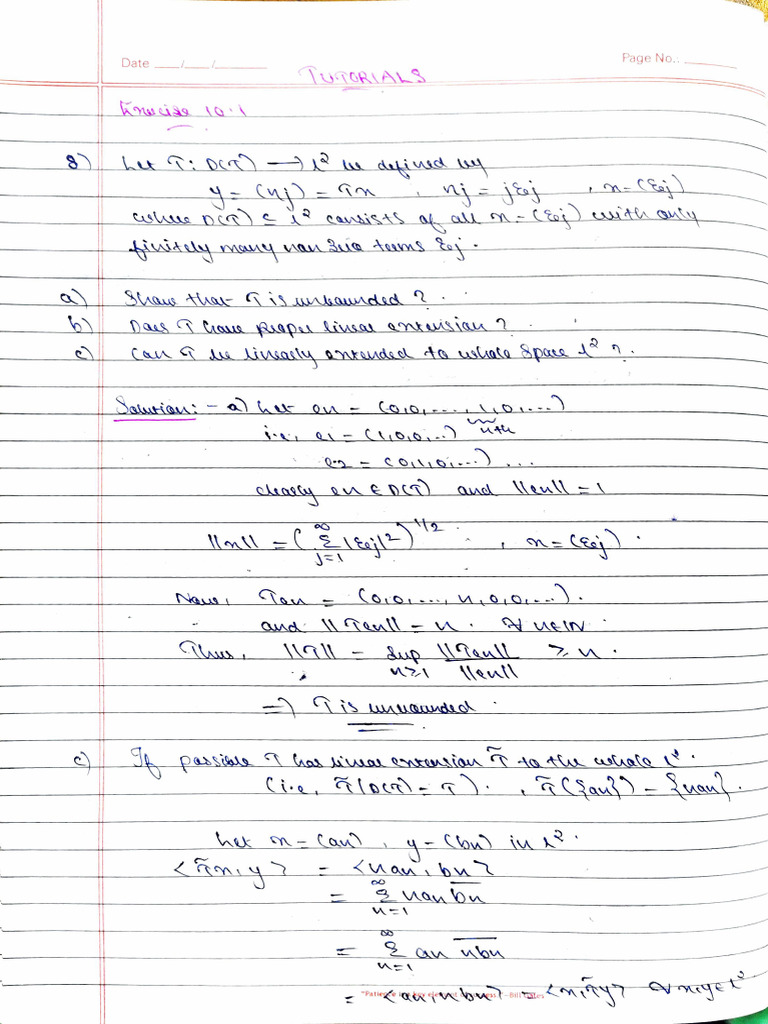 Date ___/___/______
Page No.: ______
TUTORIALS
Exercise 10.1
8) Let T: D(T) → l² be defined by
y = (ηj) = Tx , ηj = jξj , x = (ξj)
where D(T) ⊆ l² consists of all x = (ξj) with only
finitely many non zero terms ξj.
a) Show that T is unbounded ?
b) Does T have proper linear extension ?
c) Can T be linearly extended to whole space l² ?
Solution: - a) Let en = (0,0,...., 1,0,....)
i.e, e1 = (1,0,0,..) nth
e2 = (0,1,0,....) ...
clearly en ∈ D(T) and ||en|| = 1
||x|| = (∞Σj=1 |ξj|²)^1/2 , x = (ξj) .
Now, Ten = (0,0,...., n,0,0,....).
and ||Ten|| = n . ∀ n∈IN
Thus, ||T|| = Sup n≥1 ||Ten||/||en|| ≥ n .
=) T is unbounded .
c) If possible T has linear extension T̃ to the whole l².
(i.e, T̃|D(T) = T) . , T̃({an}) = {nan}.
Let x = (an) , y = (bn) in l².
<T̃x,y> = <nan, bn>
= ∞Σn=1 nan b̅n̅
= ∞Σn=1 an n̅b̅n̅
= <an, nbn> = <x,T̃y> ∀ x,y∈l²
"Patience is a key element of success." -Bill Gates